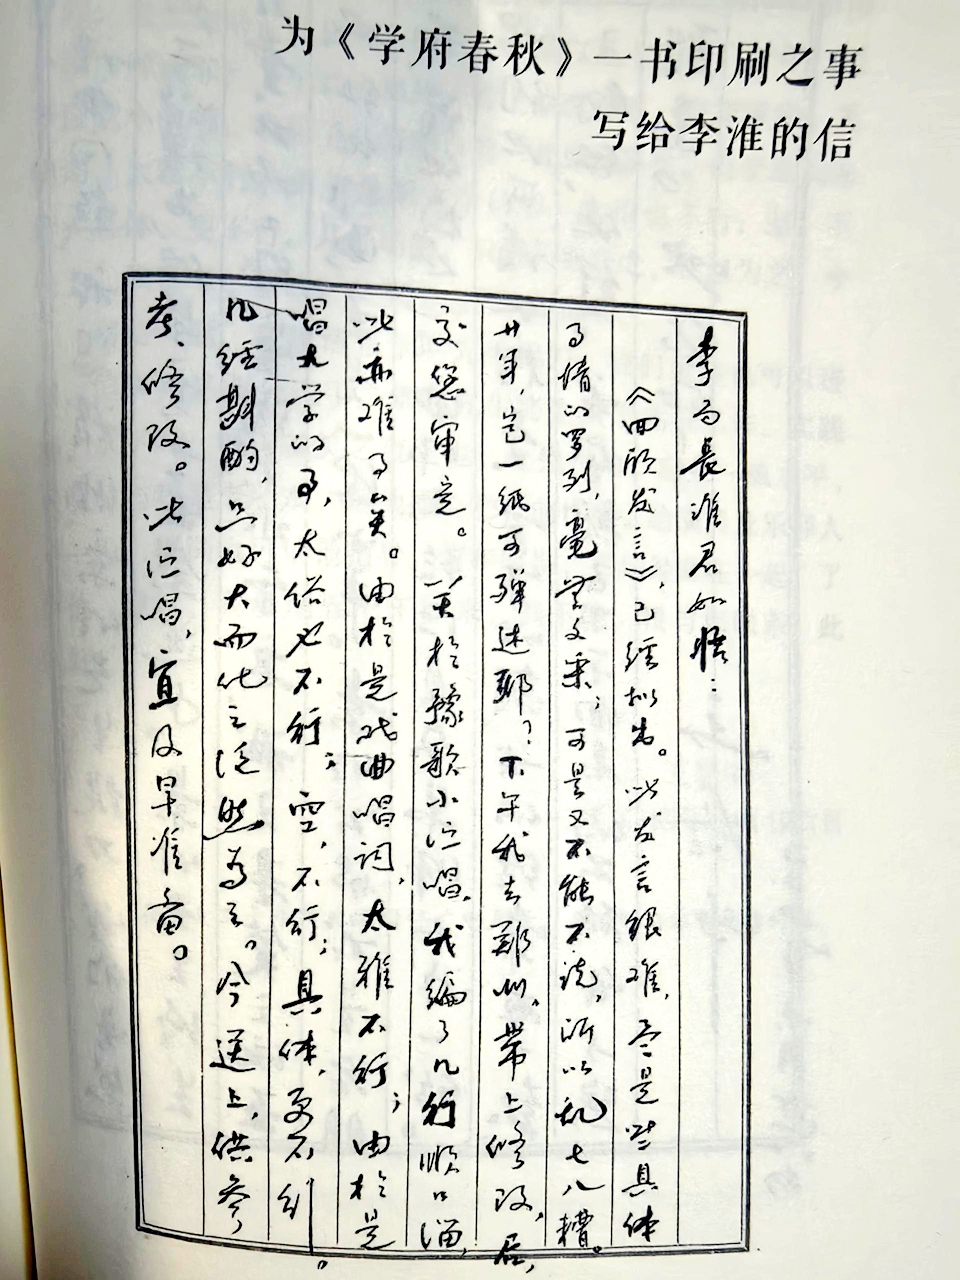 为《学府春秋》一书印刷之事
写给李淮的信
李局长淮君如晤：
《四欣发言》，已经拟出。此发言很难，尽是些具体
事情的罗列，毫无文采；可是又不能不说，所以乱七八糟。
廿年，岂一纸可殚述耶？下午我去郑州，带上修改，后，
交您审定。关于豫歌小泛唱，我编了几行顺口溜，
此亦难事矣。由于是戏曲唱词，太雅不行；由于是
唱大学的事，太俗也不行；空，不行；具体，更不行。
几经斟酌，只好大而化之泛然为之。今送上，供参
考、修改。此泛唱，宜及早准备。